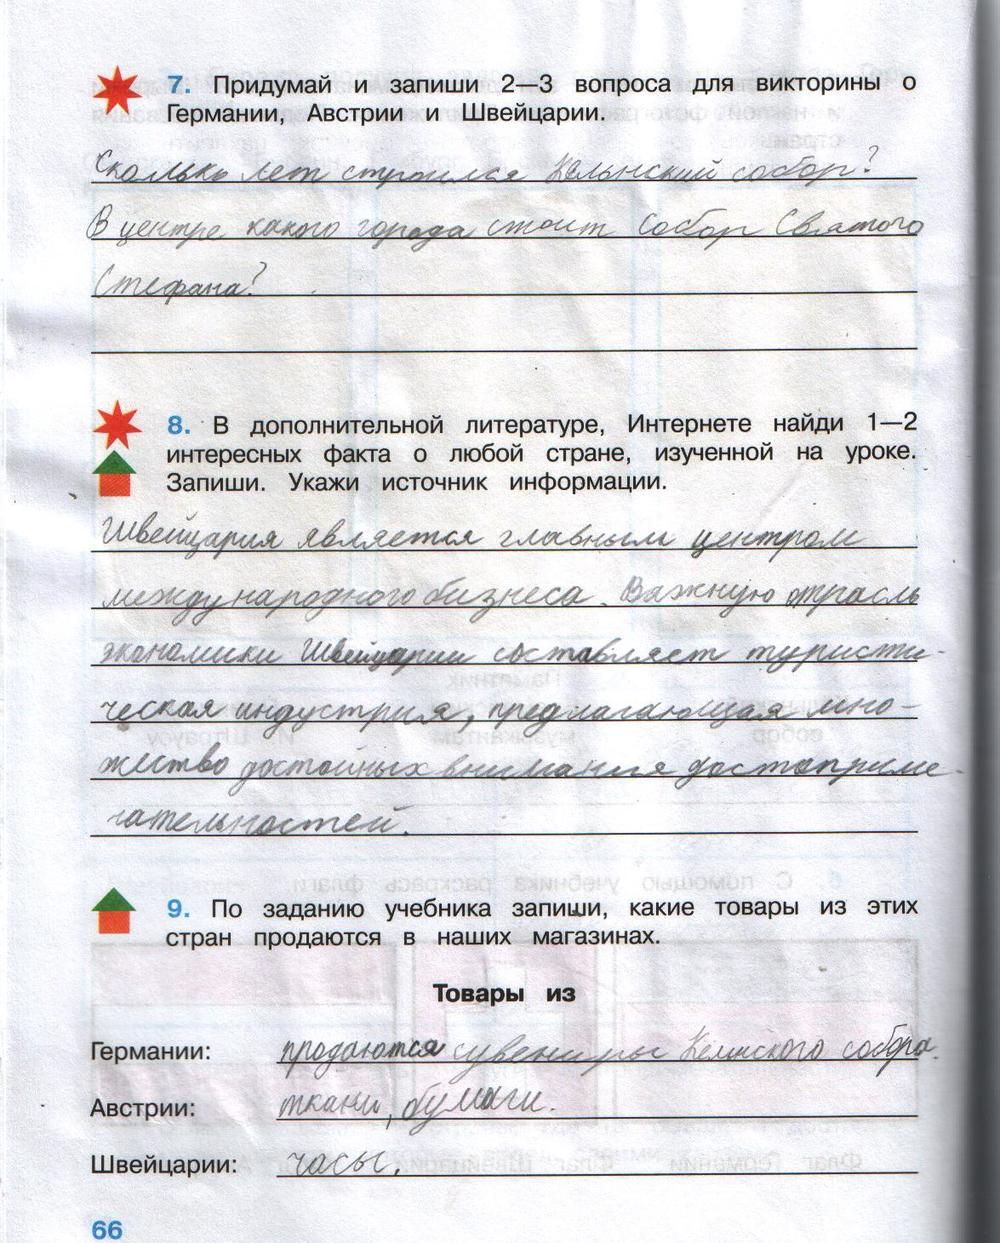 7. Придумай и запиши 2—3 вопроса для викторины о
Германии, Австрии и Швейцарии.
Сколько лет строился Кельнский собор?
В центре какого города стоит Собор Святого
Стефана?
8. В дополнительной литературе, Интернете найди 1—2
интересных факта о любой стране, изученной на уроке.
Запиши. Укажи источник информации.
Швейцария является главным центром
международного бизнеса. Важную отрасль
экономики Швейцарии составляет туристи-
ческая индустрия, предлагающая мно-
жество достойных внимания достоприме-
чательностей.
9. По заданию учебника запиши, какие товары из этих
стран продаются в наших магазинах.
Товары из
Германии: продаются сувениры собора.
Австрии: ткани, бумаги.
Швейцарии: часы.
66